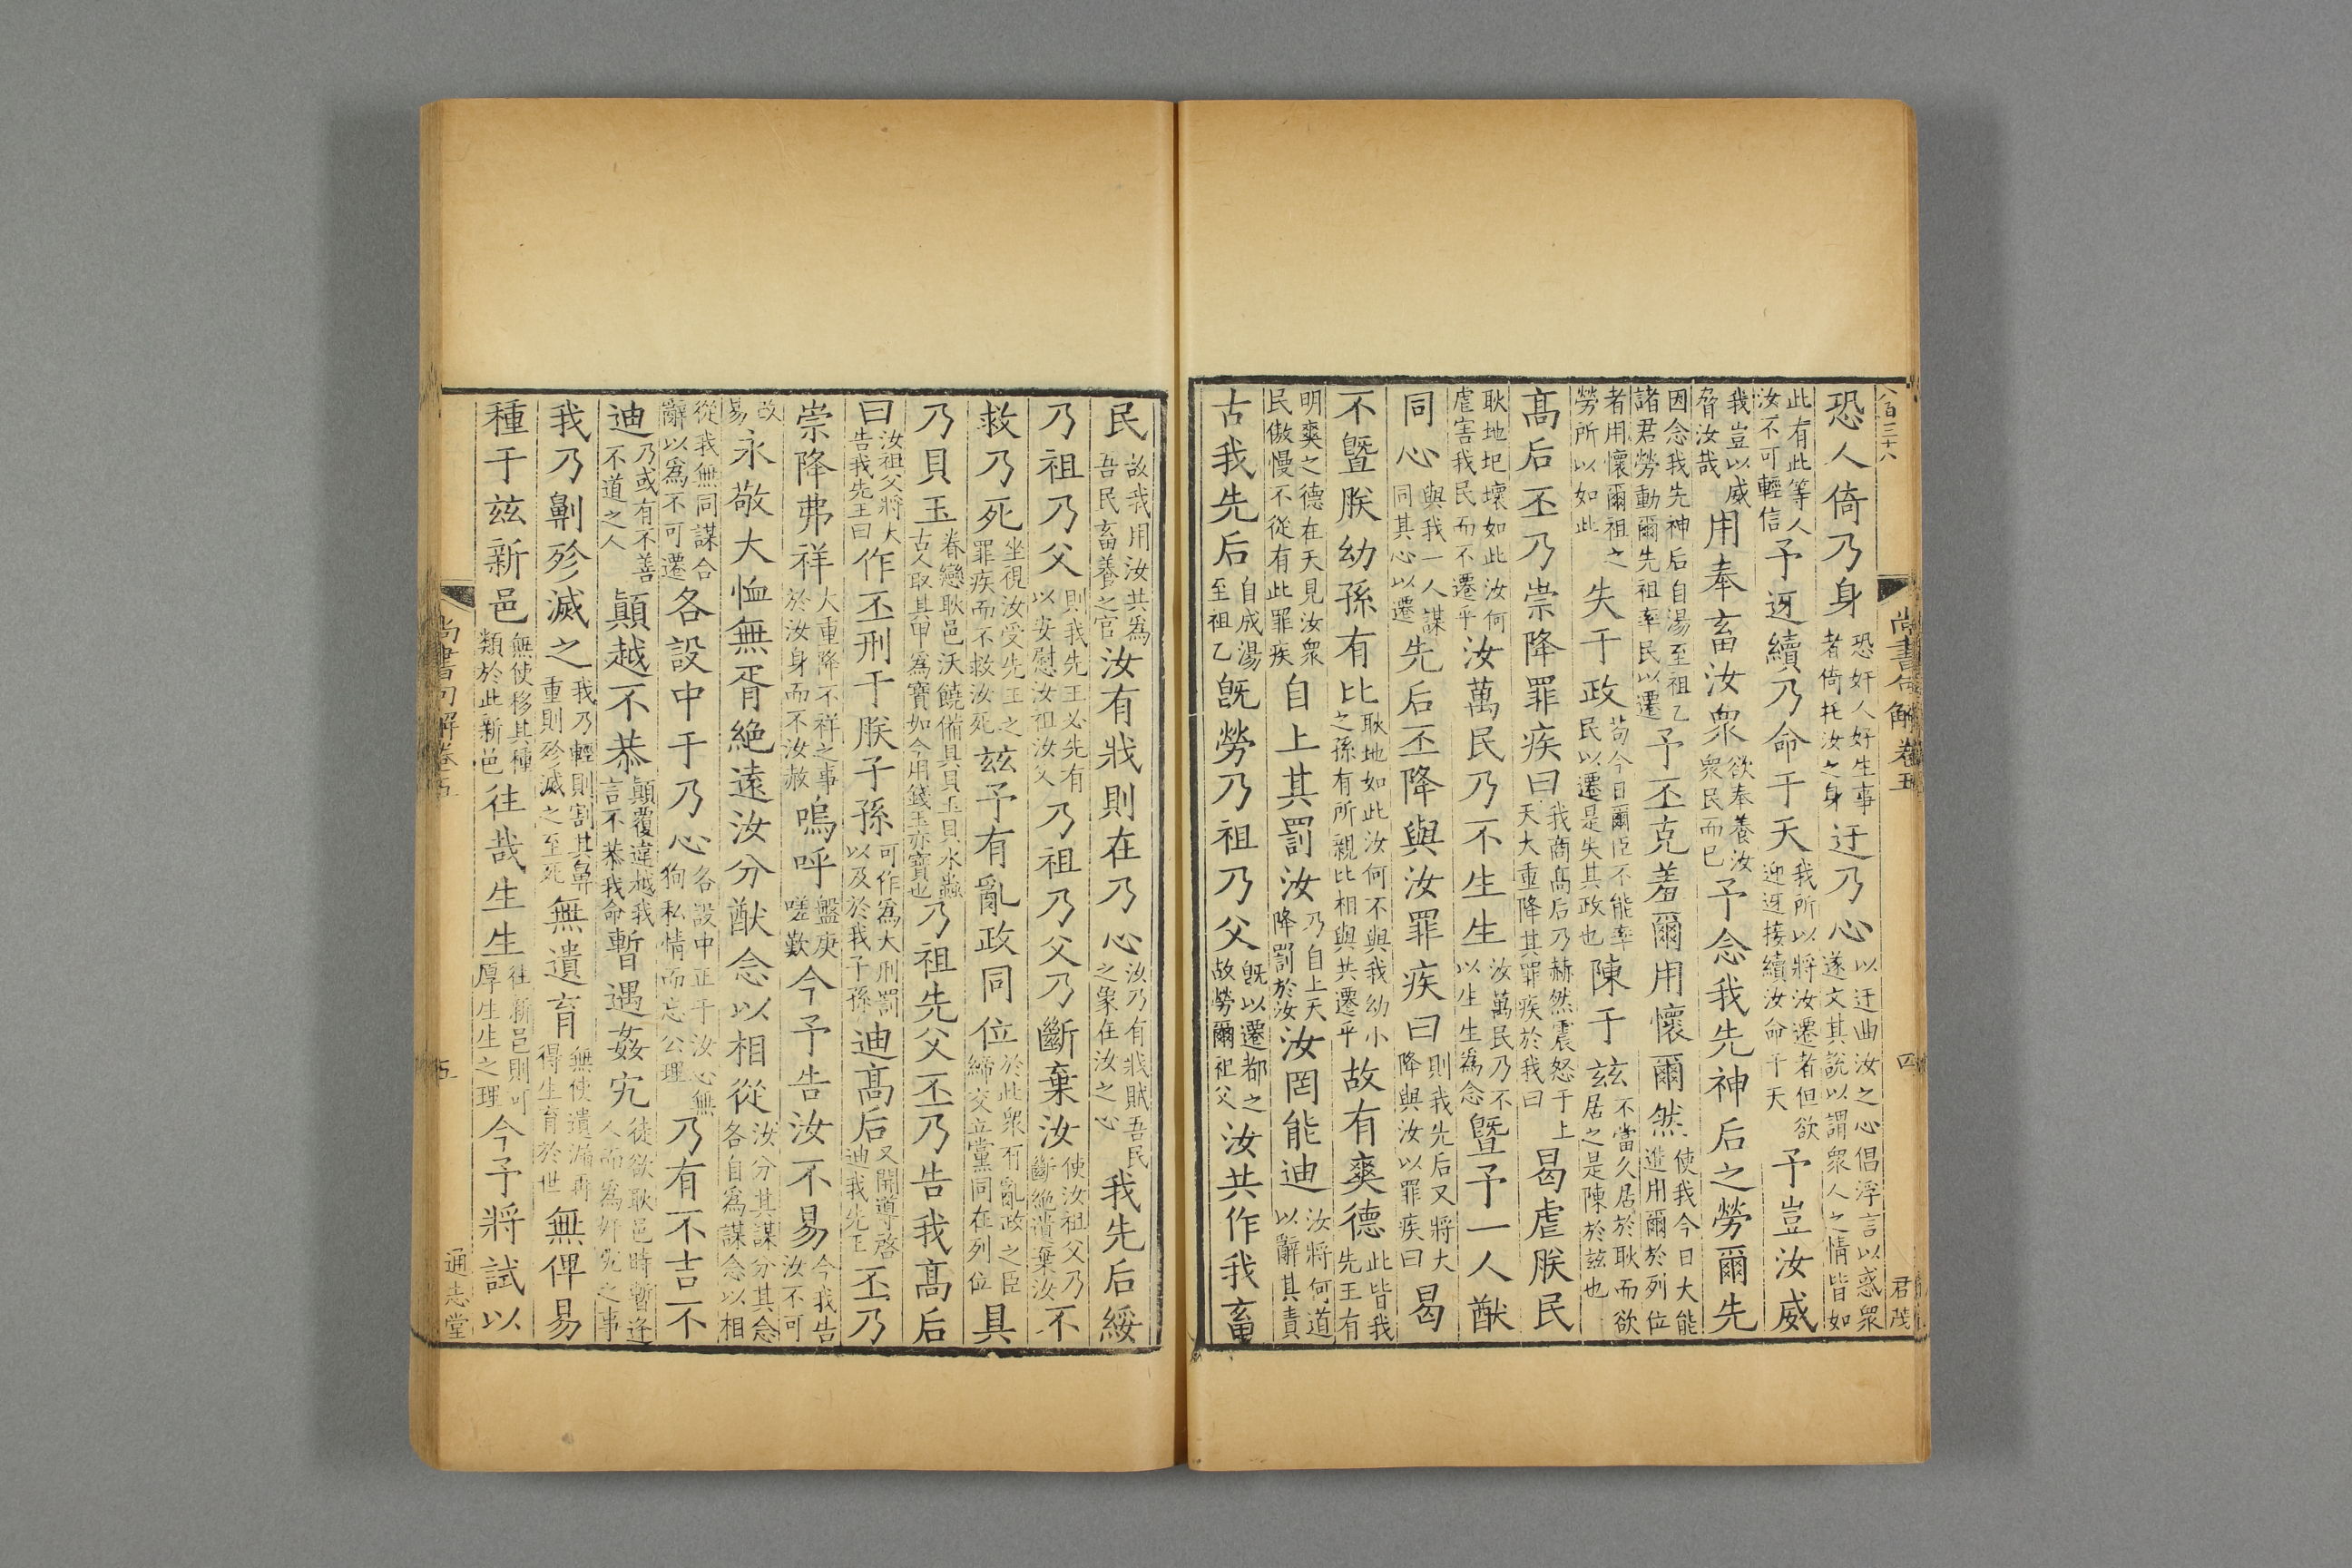 八百三十八 尚書句解卷五 四 君茂
恐人倚乃身恐奸人好生事者倚托汝之身迂乃心以迂曲汝之心倡浮言以惑衆遂文其説以謂衆人之情皆如
此有此等人汝不可輕信予迓續乃命于天我所以將汝遷者但欲迎迓接續汝命于天予豈汝威
我豈以威脅汝哉用奉畜汝衆欲奉養汝衆民而已予念我先神后之勞爾先
因念我先神后自湯至祖乙諸君勞動爾先祖率民以遷予丕克羞爾用懷爾然使我今日大能進用爾於列位
者用懷爾祖之勞所以如此失于政苟今日爾臣不能率民以遷是失其政也陳于兹不當久居於耿而欲居之是陳於兹也
高后丕乃崇降罪疾曰我商高后乃赫然震怒于上天大重降其罪疾於我曰曷虐朕民
耿地圮壞如此汝何虐害我民而不遷乎汝萬民乃不生生汝萬民乃不以生生爲念暨予一人猷
同心與我一人謀同其心以遷先后丕降與汝罪疾曰則我先后又將大降與汝以罪疾曰曷
不暨朕幼孫有比耿地如此汝何不與我幼小之孫有所親比相與共遷乎故有爽德此皆我先王有
明爽之德在天見汝衆民傲慢不從有此罪疾自上其罰汝乃自上天降罰於汝汝罔能迪汝將何道以辭其責
古我先后自成湯至祖乙旣勞乃祖乃父旣以遷都之故勞爾祖父汝共作我畜
民故我用汝共爲吾民畜養之官汝有戕則在乃心汝乃有戕賊吾民之象在汝之心我先后綏
乃祖乃父則我先王必先有以安慰汝祖汝父乃祖乃父乃斷棄汝使汝祖父乃斷絶遺棄汝不
救乃死坐視汝受先王之罪疾而不救汝死兹予有亂政同位於此衆有亂政之臣締交立黨同在列位具
乃貝玉眷戀耿邑沃饒備具貝玉貝水蟲古人取其甲爲寶如今用錢玉亦寶也乃祖先父丕乃告我高后
曰汝祖父將大告我先王曰作丕刑于朕子孫可作爲大刑罰以及於我子孫迪高后又開導啓迪我先王丕乃
崇降弗祥大重降不祥之事於汝身而不汝赦嗚呼盤庚嗟歎今予告汝不易今我告汝不可
故易永敬大恤無胥絶遠汝分猷念以相從汝分其謀分其念各自爲謀念以相
從我無同謀合辭以爲不可遷各設中于乃心各設中正于汝心無狥私情而忘公理乃有不吉不
迪乃或有不善不道之人顚越不恭顚覆違越我言不恭我命暫遇姦宄徒欲耿邑時暫逢人而爲奸宄之事
我乃劓殄滅之我乃輕則割其鼻重則殄滅之至死無遺育無使遺漏再得生育於世無俾易
種于兹新邑無使移其種類於此新邑往哉生生往新邑則可厚生生之理今予將試以
尚書句解卷五 五 通志堂